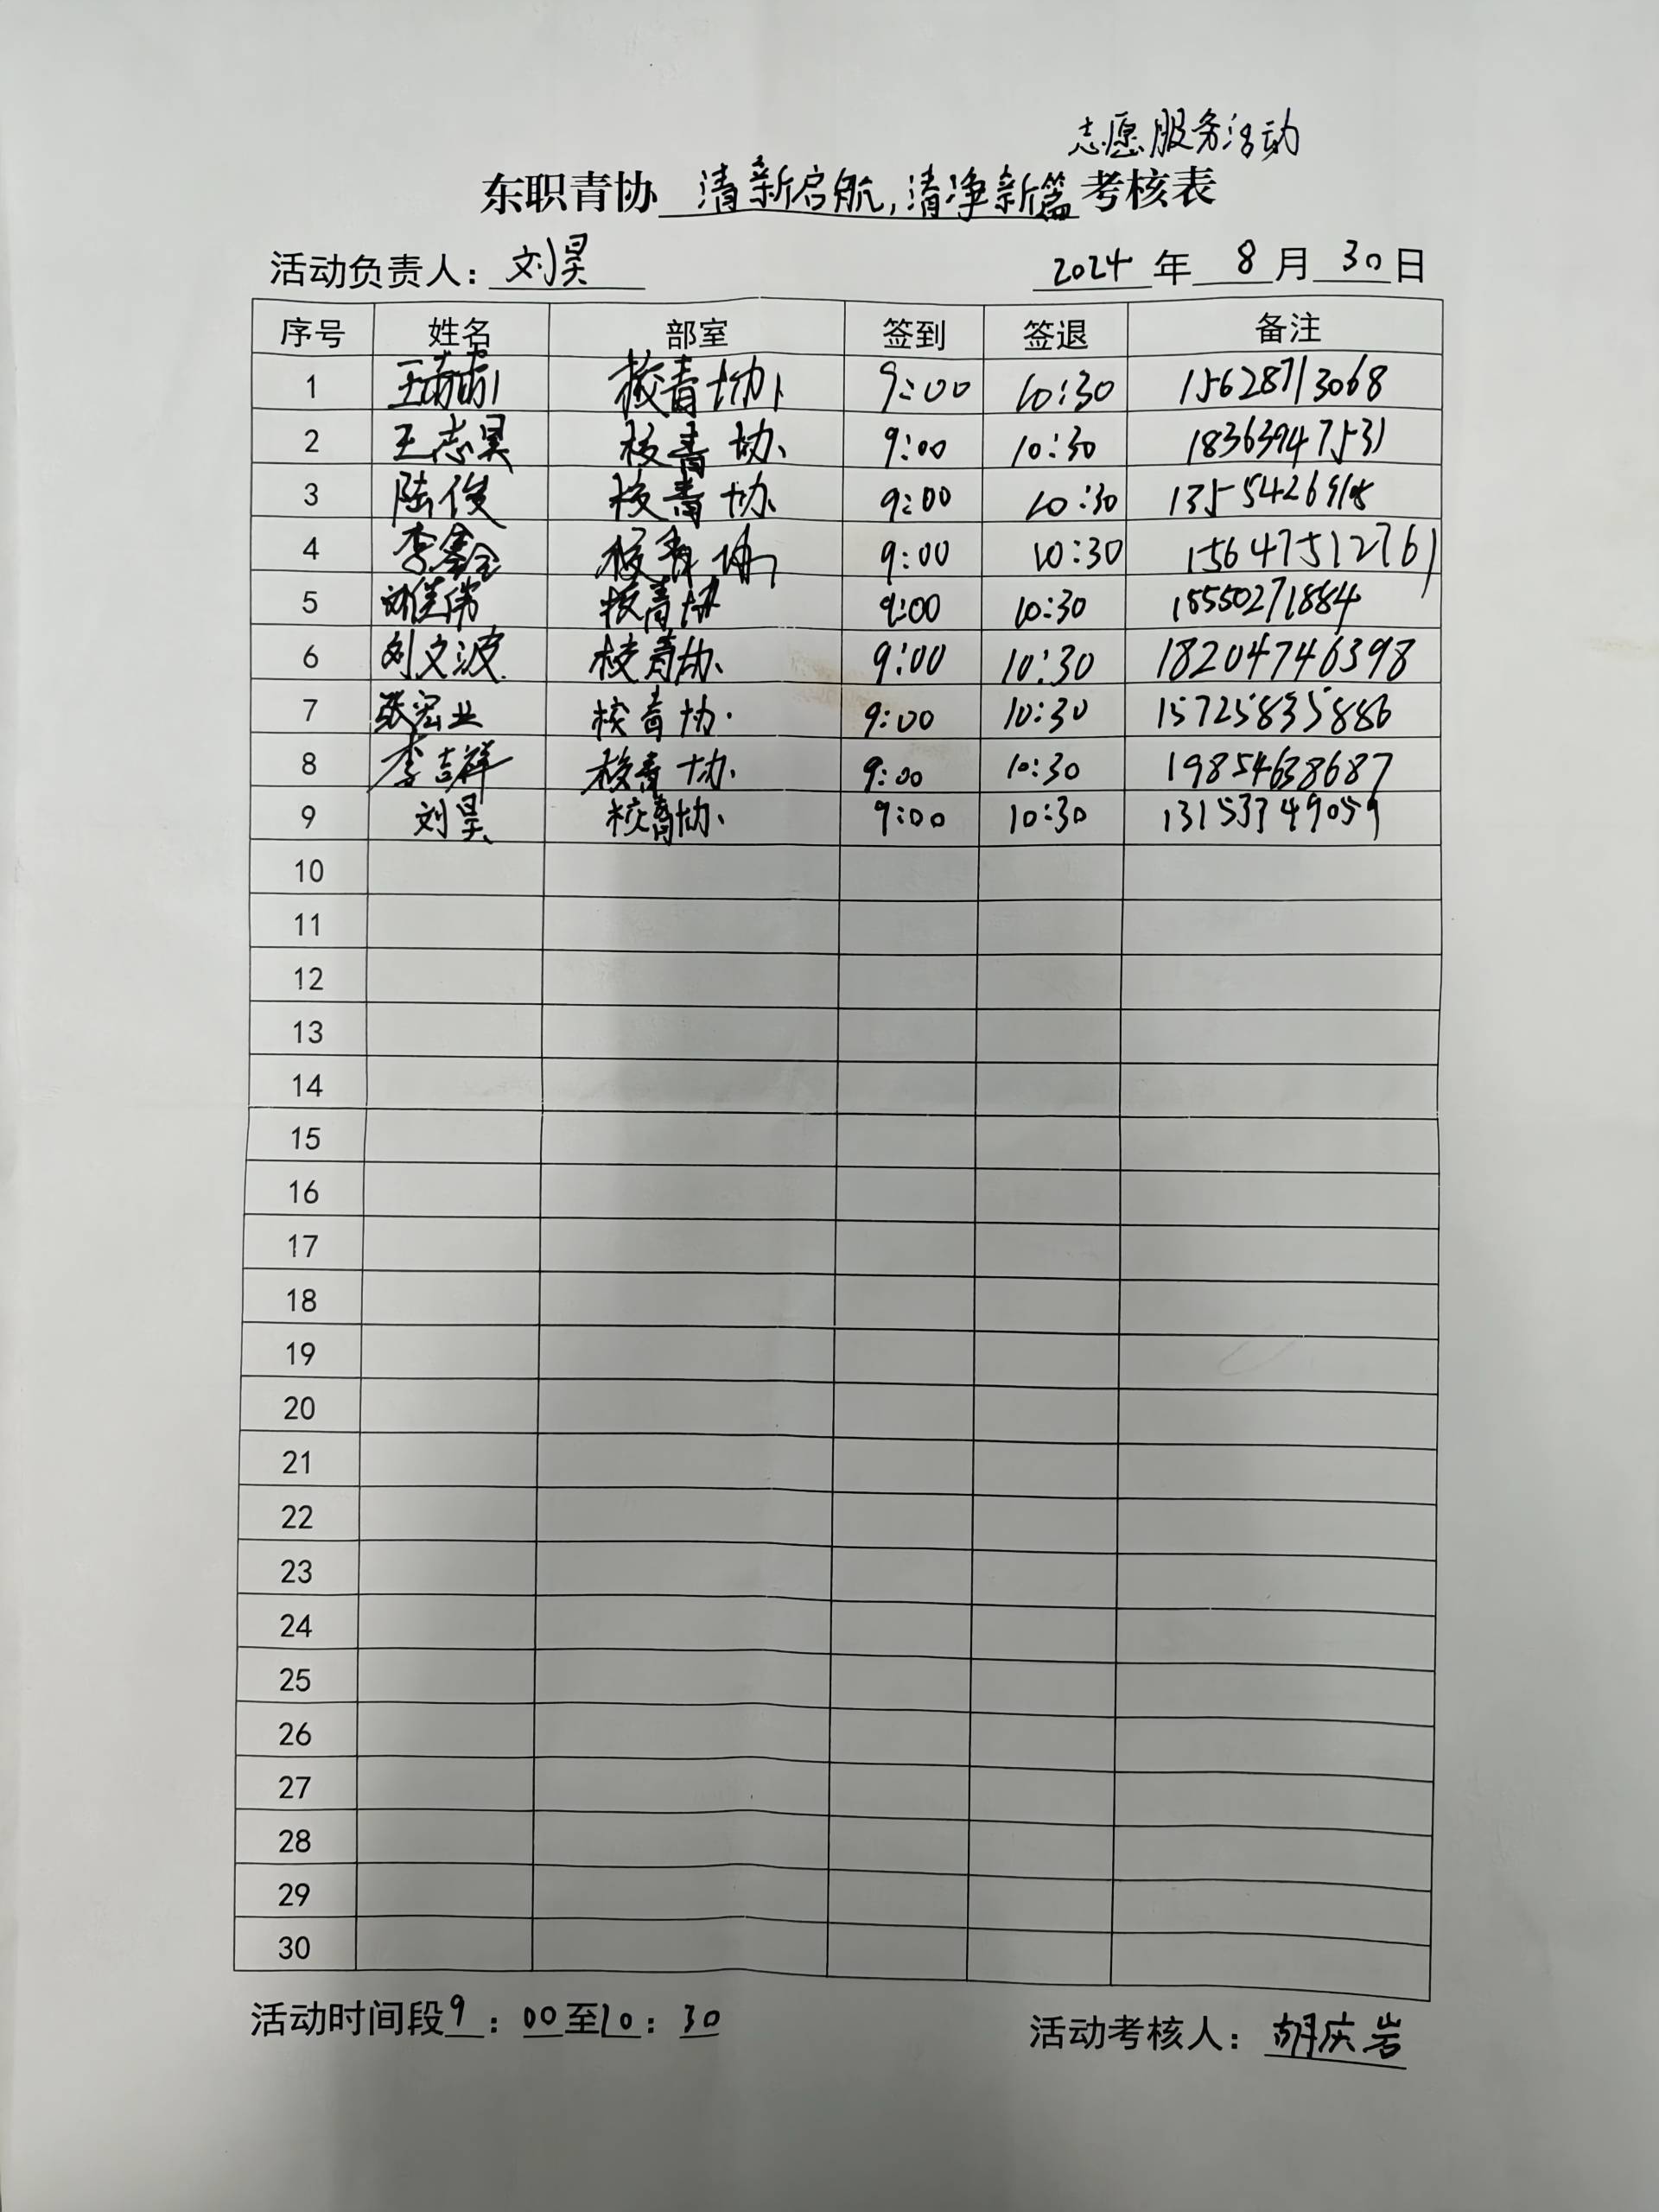 志愿服务活动
东职青协 清新启航,清净新篇 考核表
活动负责人: 刘昊 2024 年 8 月 30 日
序号 姓名 部室 签到 签退 备注
1 校青协 9:00 10:30 15628713068
2 王志昊 校青协 9:00 10:30 18363947531
3 陆俊 校青协 9:00 10:30
4 李鑫 校青协 9:00 10:30 15647512761
5 校青协 9:00 10:30 18550271884
6 刘文波 校青协 9:00 10:30 18204746398
7 张宏业 校青协 9:00 10:30 15725835886
8 李吉祥 校青协 9:00 10:30 19854638687
9 刘昊 校青协 9:00 10:30 13153349059
10
11
12
13
14
15
16
17
18
19
20
21
22
23
24
25
26
27
28
29
30
活动时间段 9 : 00 至 10 : 30 活动考核人: 胡庆岩